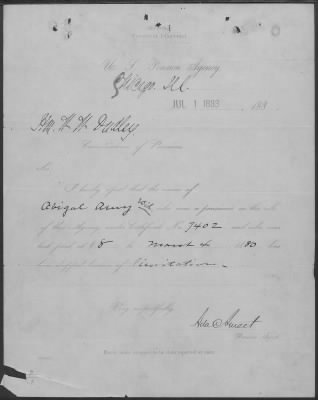 U. S. Pension Agency
Chicago Ill.
JUL 1 1883 188
Hon. W. W. Dudley
Commissioner of Pensions
Sir:
I hereby report that the name of
Abigal Amy Wid who was a pensioner on the rolls
of this Agency under Certificate No. 7402 and who was
last paid at $ 8 to March 4 1880 has
been dropped because of limitation.
Very respectfully,
Ada C. Sweet
Pension Agent.